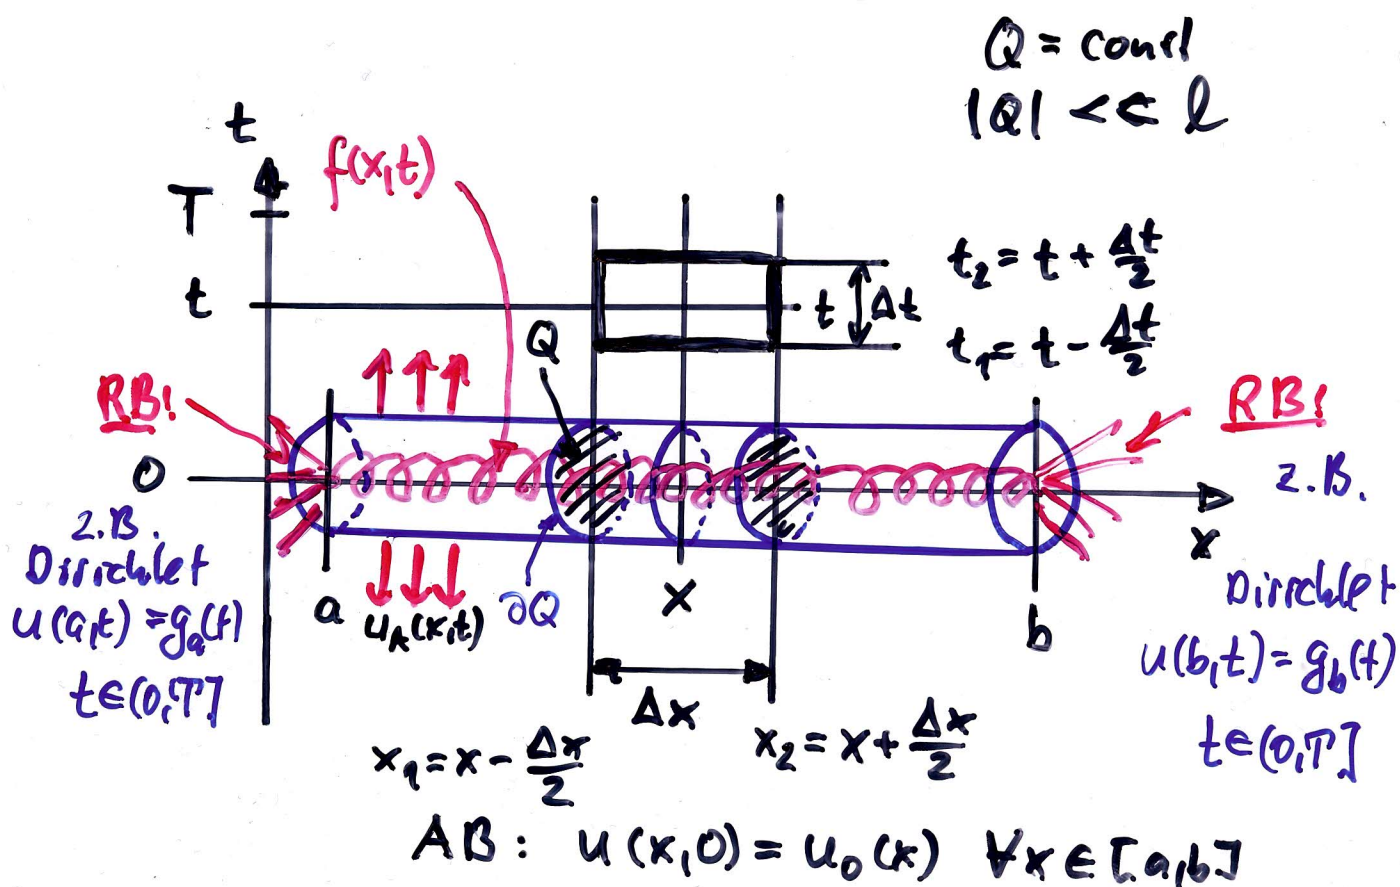 Q = const
|Q| << l
t
f(x,t)
T
t
t₂ = t + Δt/2
t Δt
t₁ = t - Δt/2
Q
RB!
RB!
0
z.B.
x
z.B.
Dirichlet
u(a,t) = gₐ(t)
t∈(0,T]
a
u_A(x,t)
∂Q
x
b
Dirichlet
u(b,t) = g_b(t)
t∈(0,T]
Δx
x₁ = x - Δx/2
x₂ = x + Δx/2
AB: u(x,0) = u₀(x) ∀x∈[a,b]